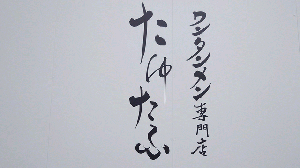 ワンタンメン専門店
たゆたふ